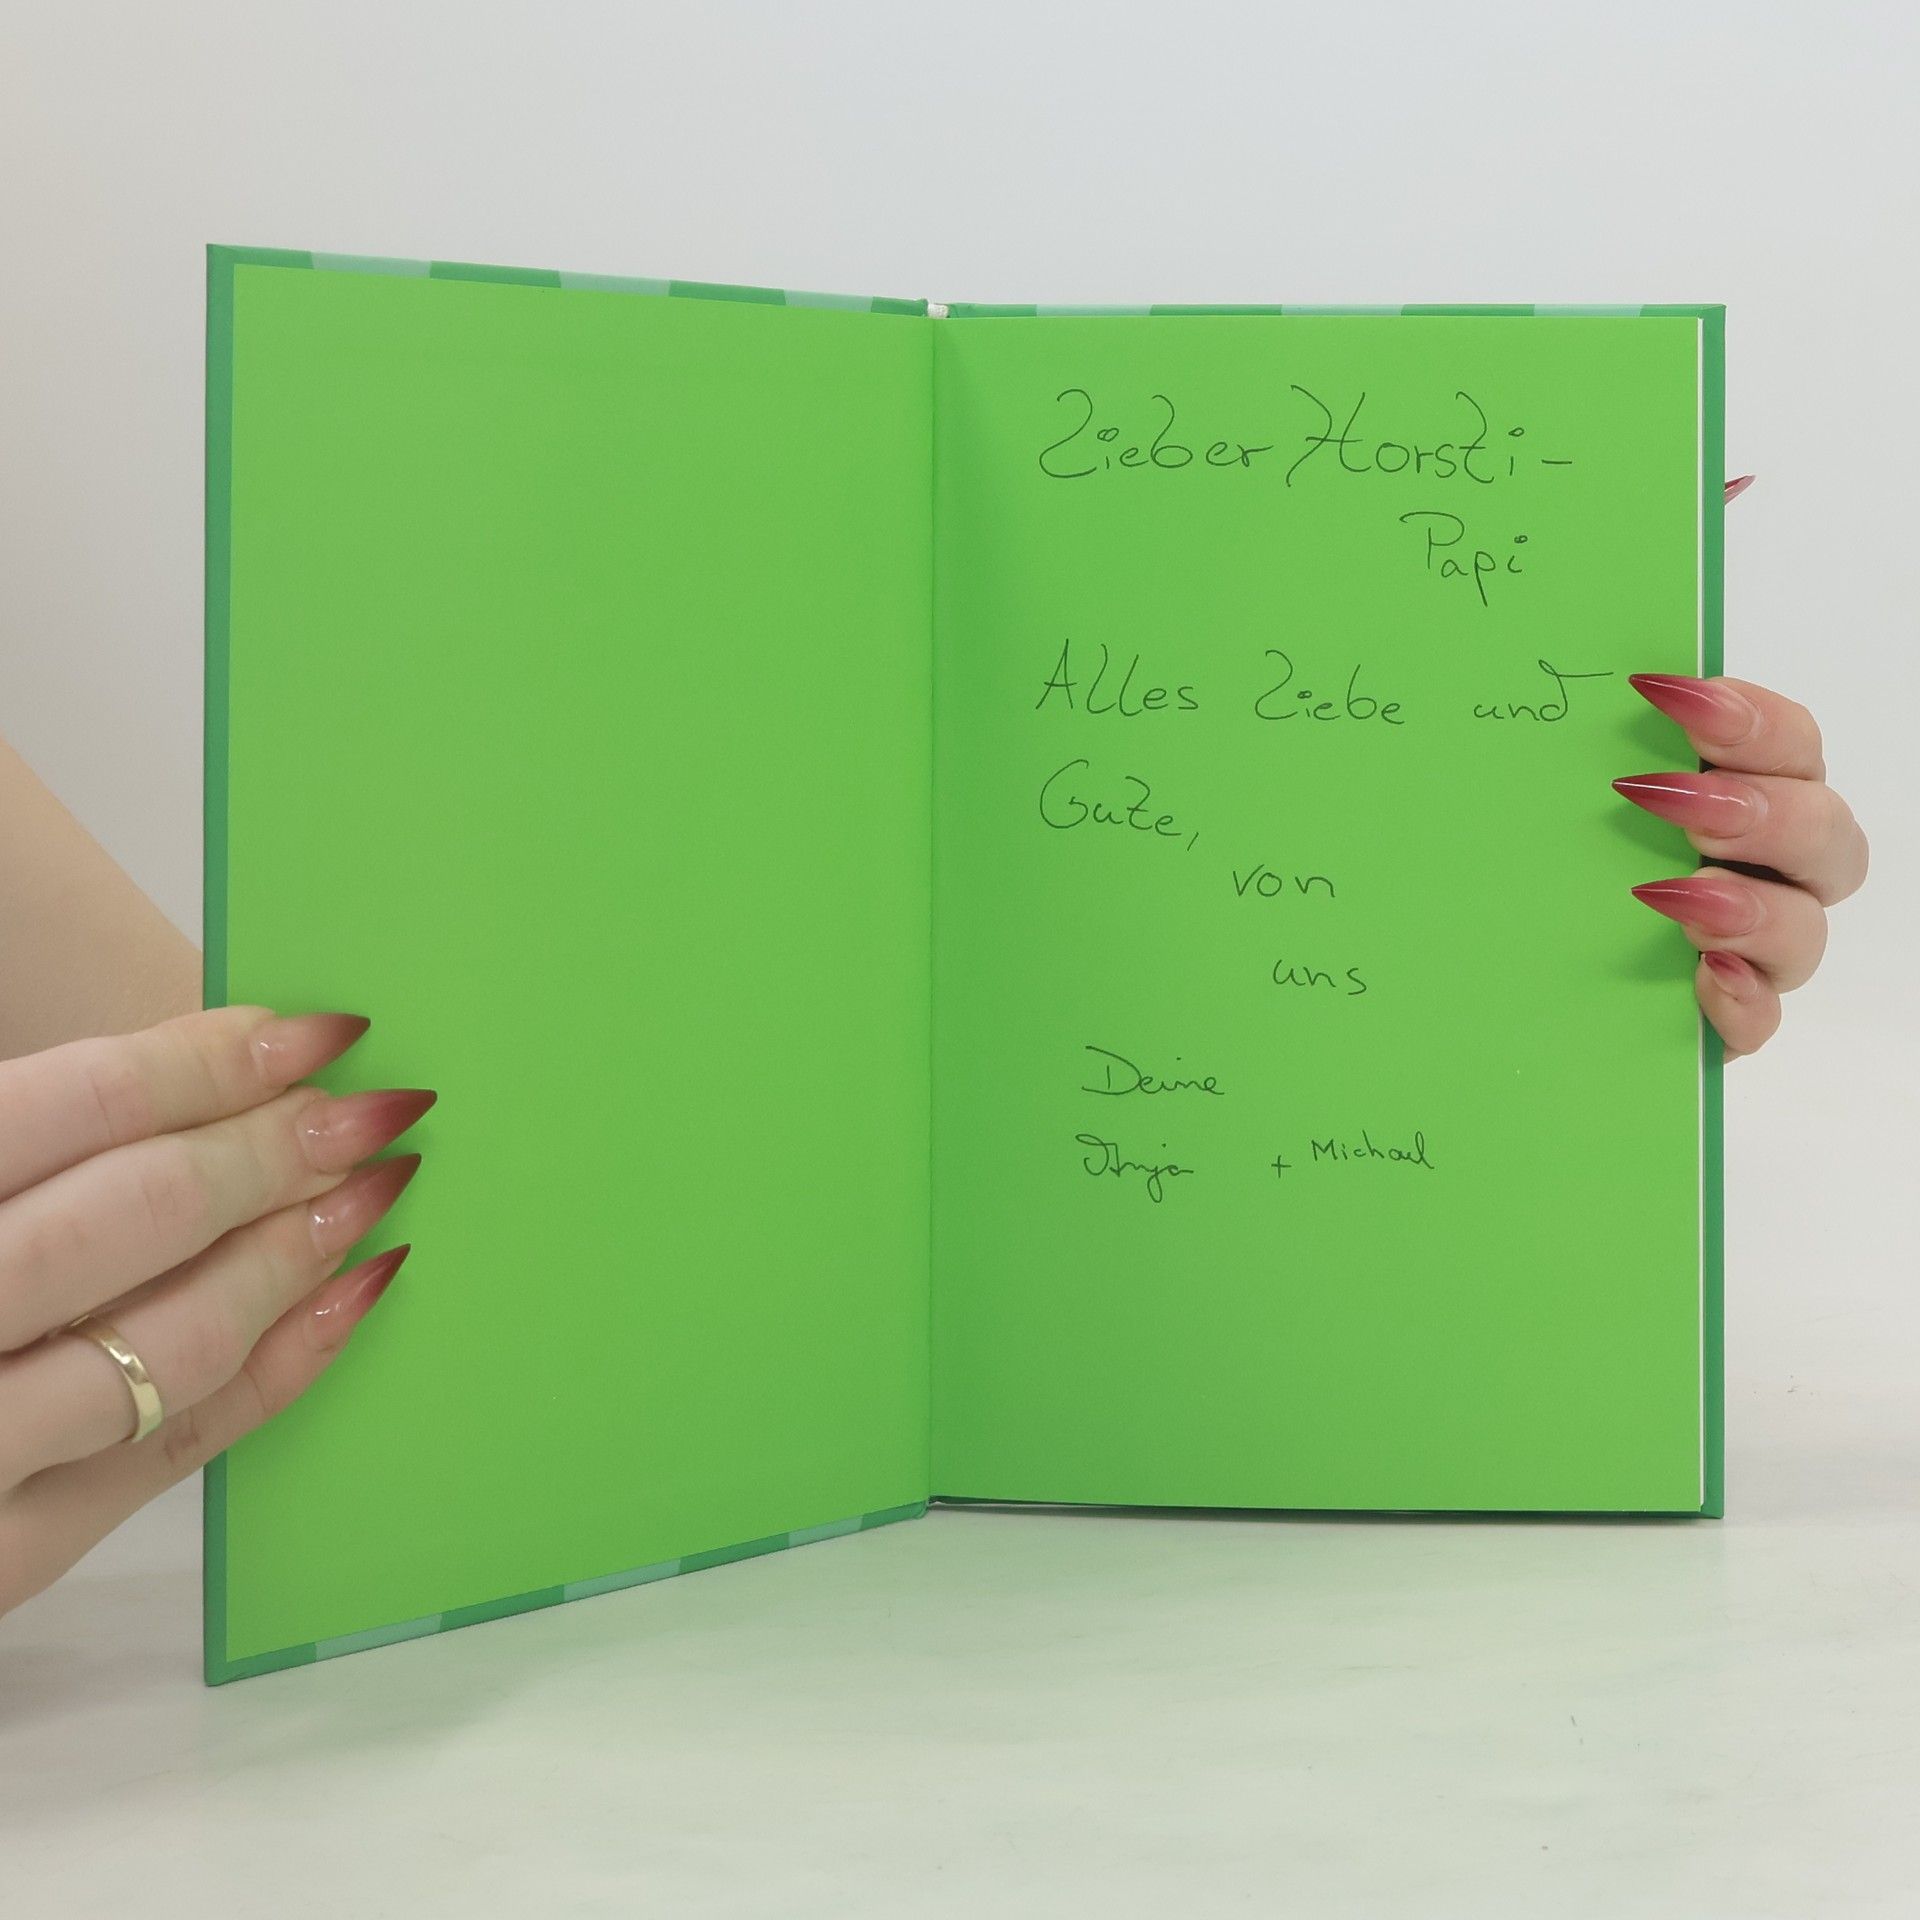 Lieber Horsti-
Papi
Alles Liebe und
Gute,
von
uns
Deine
Anja + Michael